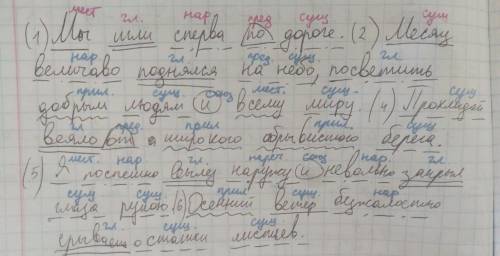 мест гл. нар пред сущ сущ
(1) Мы шли сперва по дороге. (2) Месяц
нар гл. пред. сущ. гл
величаво поднялся на небо, посветить
прил. сущ. союз мест. сущ. сущ.
добрым людям и всему миру. (4) Прохладой
гл пред. прил прил. сущ
веяло от широкого обрывистого берега.
мест. нар. гл. нареч союз нар. гл
(5) Я поспешно вылез наружу и невольно закрыл
сущ сущ. прил сущ. нар
глаза рукою (6) Осенний ветер безжалостно
гл. сущ. сущ.
срывает остатки листьев.